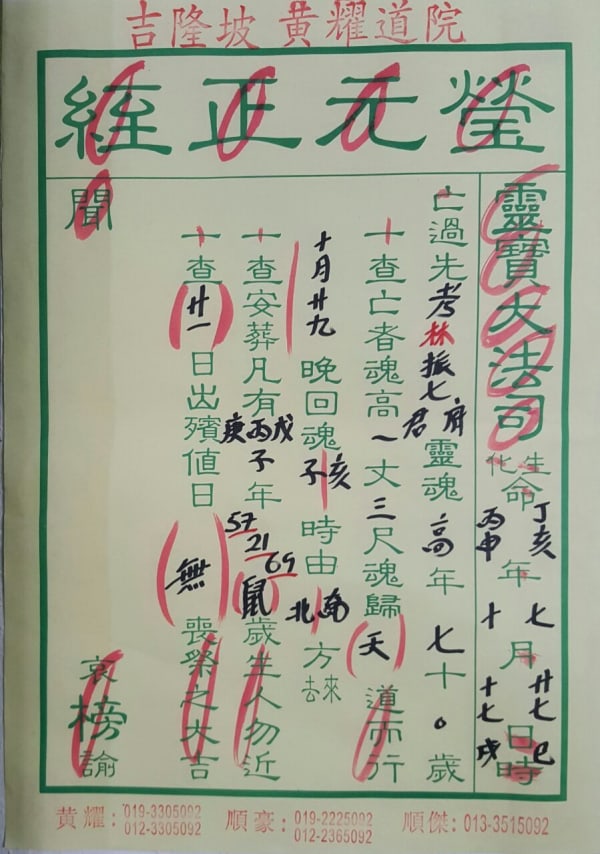 吉隆坡 黄耀道院
瑩元正經
靈寶大法司
生化命 丁亥 丙申 年 七 十 月 廿七 十七 日 巳 戌 時
亡過先考林振七府君靈魂高年七十。歲
十查亡者魂高一丈三尺魂歸(天)道而行
十月廿九晚回魂亥子時由南北方來去
十查安葬凡有戊丙庚子年 69 21 57 鼠歲生人勿近
十查(廿一)日出殯值日(無)喪祭之大吉
聞
哀榜諭
黄耀: 019-3305092 012-3305092 順豪: 019-2225092 012-2365092 順傑: 013-3515092